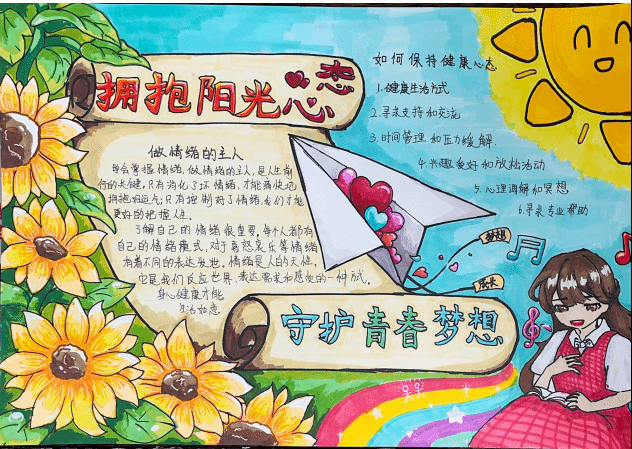 拥抱阳光心态
做情绪的主人
学会掌握情绪,做情绪的主人,是人生前
行的关键,只有消化了坏情绪,才能痛快地
拥抱好运气;只有控制好了情绪,我们才能
更好的把握人生。
了解自己的情绪很重要,每个人都有
自己的情绪模式,对于喜怒哀乐等情绪
有着不同的表达发泄,情绪是人的天性,
它是我们反应世界、表达需求和感受的一种方式。
身心健康才能
生活如意
如何保持健康心态
1.健康生活方式
2.寻求支持和交流
3.时间管理和压力缓解.
4.兴趣爱好和放松活动
5.心理调解和冥想
6.寻求专业帮助
梦想
成长
守护青春梦想